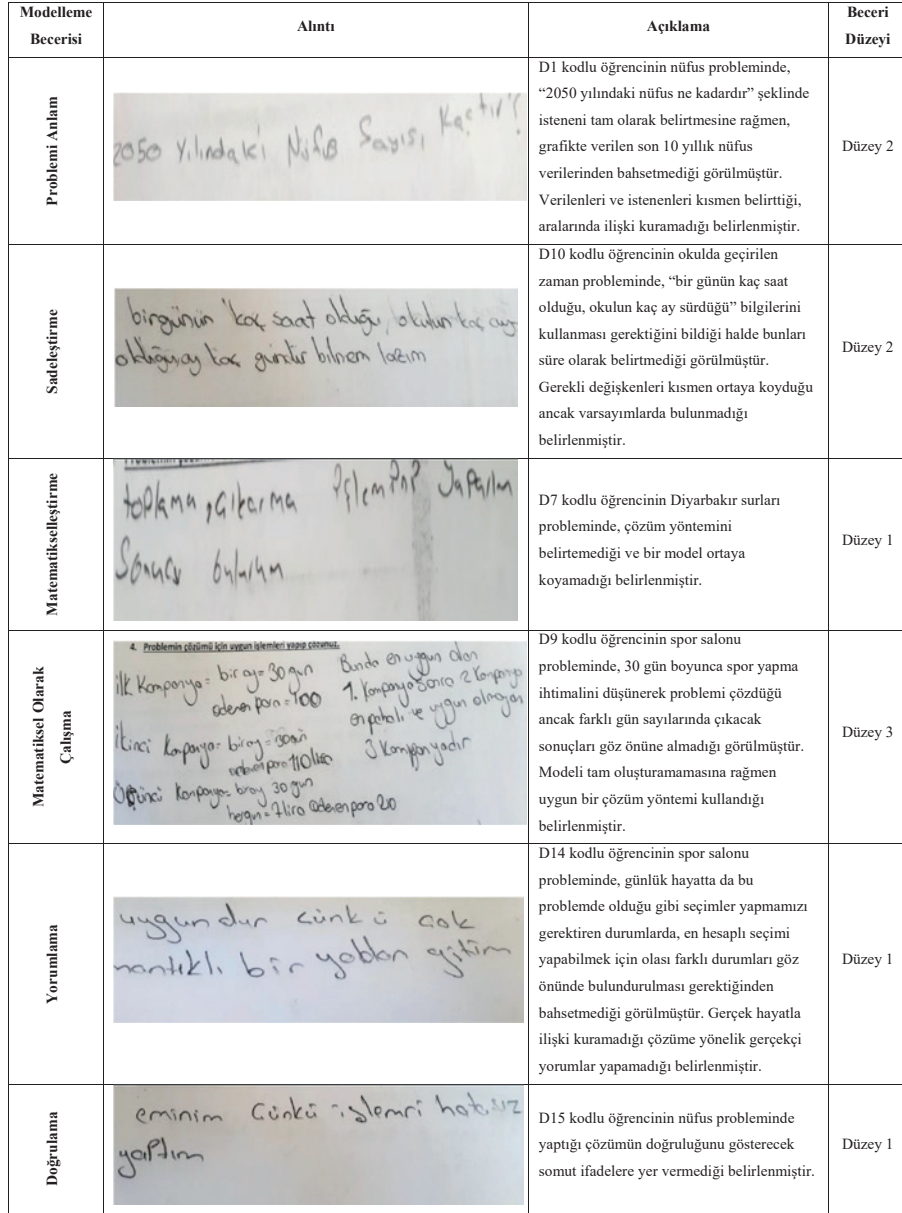 Modelleme
Becerisi
Alıntı
Açıklama
Beceri
Düzeyi
Problemi Anlam
2050 Yılındaki Nüfus Sayısı Kaçtır?
D1 kodlu öğrencinin nüfus probleminde,
“2050 yılındaki nüfus ne kadardır” şeklinde
isteneni tam olarak belirtmesine rağmen,
grafikte verilen son 10 yıllık nüfus
verilerinden bahsetmediği görülmüştür.
Verilenleri ve istenenleri kısmen belirttiği,
aralarında ilişki kuramadığı belirlenmiştir.
Düzey 2
Sadeleştirme
birgünün kaç saat olduğu, okulun kaç ay
olduğu, ay kaç gündür bilmem lazım
D10 kodlu öğrencinin okulda geçirilen
zaman probleminde, “bir günün kaç saat
olduğu, okulun kaç ay sürdüğü” bilgilerini
kullanması gerektiğini bildiği halde bunları
süre olarak belirtmediği görülmüştür.
Gerekli değişkenleri kısmen ortaya koyduğu
ancak varsayımlarda bulunmadığı
belirlenmiştir.
Düzey 2
Matematikselleştirme
toplama, çıkarma işlemini yaparım
Sonucu bulurum
D7 kodlu öğrencinin Diyarbakır surları
probleminde, çözüm yöntemini
belirtemediği ve bir model ortaya
koyamadığı belirlenmiştir.
Düzey 1
Matematiksel Olarak
Çalışma
4. Problemin çözümü için uygun işlemleri yapıp çözünüz.
ilk Kompanya = bir ay = 30 gün
ödenen para = 100
ikinci Kompanya = bir ay = 30 gün
ödenen para 110 lira
Üçüncü Kompanya = bir ay 30 gün
hergün = 7 lira ödenen para 20
Bunda en uygun olan
1. Kompanya sonra 2 Kompanya
en pahalı ve uygun olmayan
3 Kompanyadır
D9 kodlu öğrencinin spor salonu
probleminde, 30 gün boyunca spor yapma
ihtimalini düşünerek problemi çözdüğü
ancak farklı gün sayılarında çıkacak
sonuçları göz önüne almadığı görülmüştür.
Modeli tam oluşturamamasına rağmen
uygun bir çözüm yöntemi kullandığı
belirlenmiştir.
Düzey 3
Yorumlama
uygundur çünkü çok
mantıklı bir yoldan gitim
D14 kodlu öğrencinin spor salonu
probleminde, günlük hayatta da bu
problemde olduğu gibi seçimler yapmamızı
gerektiren durumlarda, en hesaplı seçimi
yapabilmek için olası farklı durumları göz
önünde bulundurulması gerektiğinden
bahsetmediği görülmüştür. Gerçek hayatla
ilişki kuramadığı çözüme yönelik gerçekçi
yorumlar yapamadığı belirlenmiştir.
Düzey 1
Doğrulama
eminim Çünkü işlemri hatasız
yaptım
D15 kodlu öğrencinin nüfus probleminde
yaptığı çözümün doğruluğunu gösterecek
somut ifadelere yer vermediği belirlenmiştir.
Düzey 1